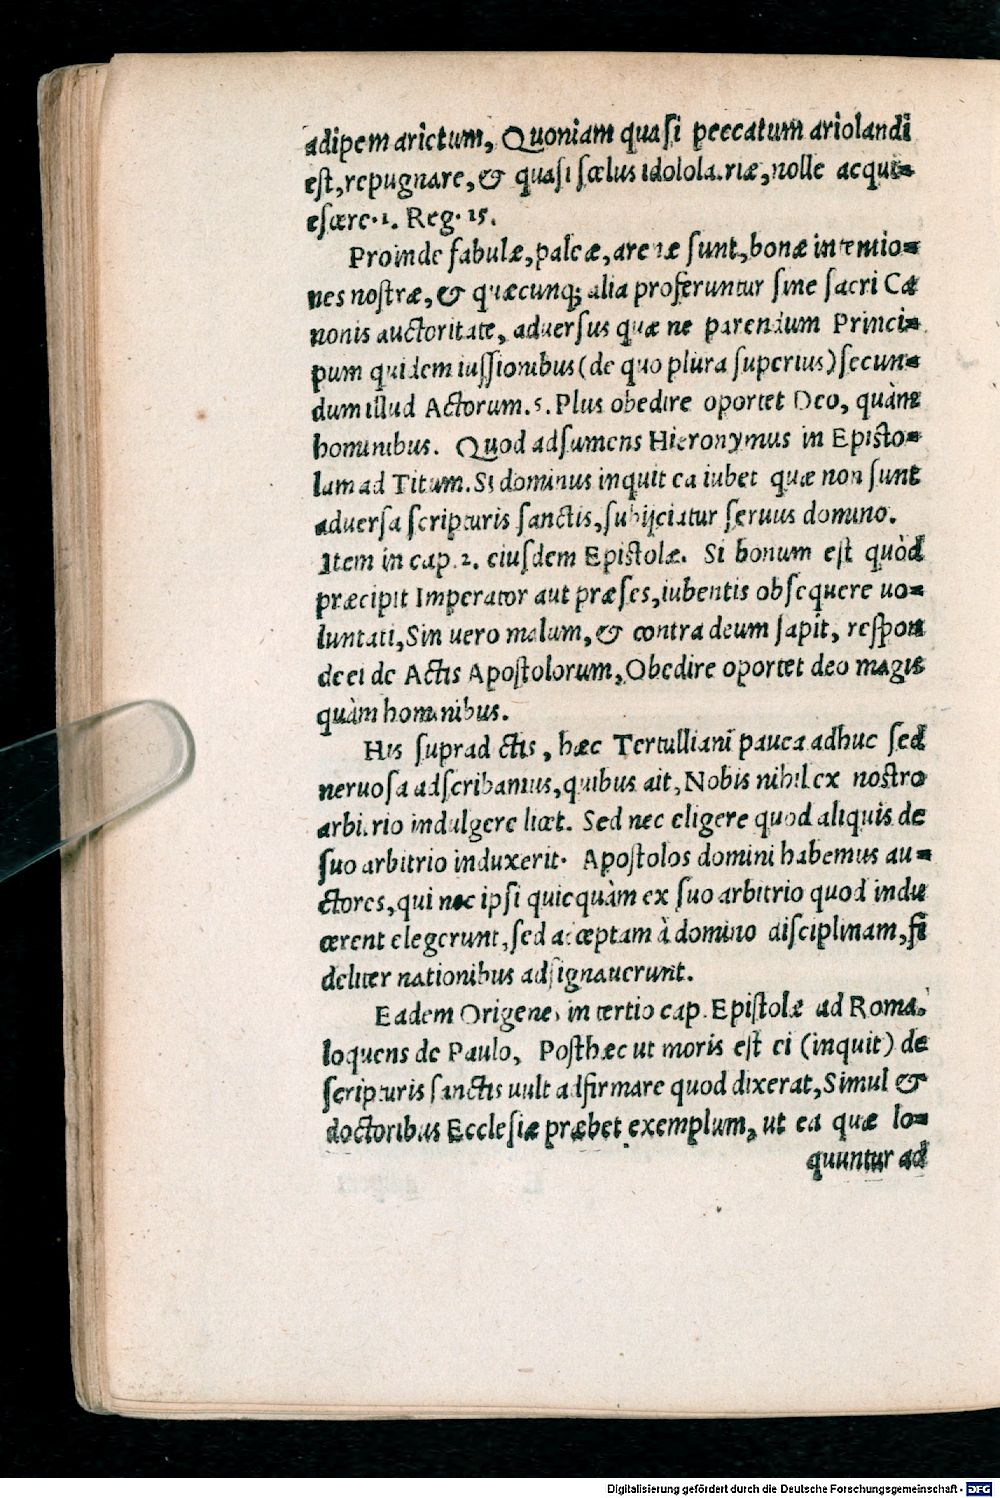 adipem arietum, Quoniam quasi peccatum ariolandi
est, repugnare, & quasi scelus idololatriæ, nolle acqui=
escere. 1. Reg. 15.
Proinde fabulæ, paleæ, arenæ sunt, bonæ intentio=
nes nostræ, & quæcunq; alia proferuntur sine sacri Ca
nonis auctoritate, adversus quæ ne parendum Princi=
pum quidem iussionibus (de quo plura superius) secun=
dum illud Actorum. 5. Plus obedire oportet Deo, quàm
hominibus. Quod adsumens Hieronymus in Episto=
lam ad Titum. Si dominus inquit ea iubet quæ non sunt
adversa scripturis sanctis, subijciatur servus domino.
Item in cap. 2. eiusdem Epistolæ. Si bonum est quòd
præcipit Imperator aut præses, iubentis obsequere uo=
luntati, Sin uero malum, & contra deum sapit, respon
de ei de Actis Apostolorum, Obedire oportet deo magis
quàm hominibus.
His supradictis, hæc Tertulliani pauca adhuc sed
neruosa adscribamus, quibus ait, Nobis nihil ex nostro
arbitrio indulgere licet. Sed nec eligere quod aliquis de
suo arbitrio induxerit. Apostolos domini habemus au=
ctores, qui nec ipsi quicquàm ex suo arbitrio quod indu
cerent elegerunt, sed acceptam à domino disciplinam, fi
deliter nationibus adsignauerunt.
Eadem Origenes in tertio cap. Epistolæ ad Roma.
loquens de Paulo, Posthæc ut moris est ei (inquit) de
scripturis sanctis uult adfirmare quod dixerat, Simul &
doctoribus Ecclesiæ præbet exemplum, ut ea quæ lo=
quuntur ad
Digitalisierung gefördert durch die Deutsche Forschungsgemeinschaft - DFG